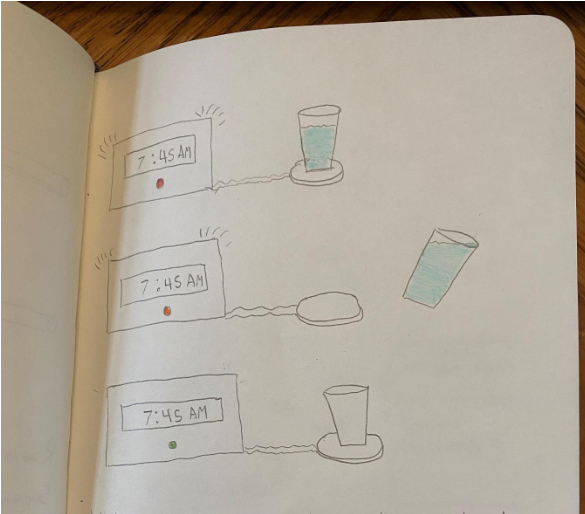 7:45 AM
7:45 AM
7:45 AM